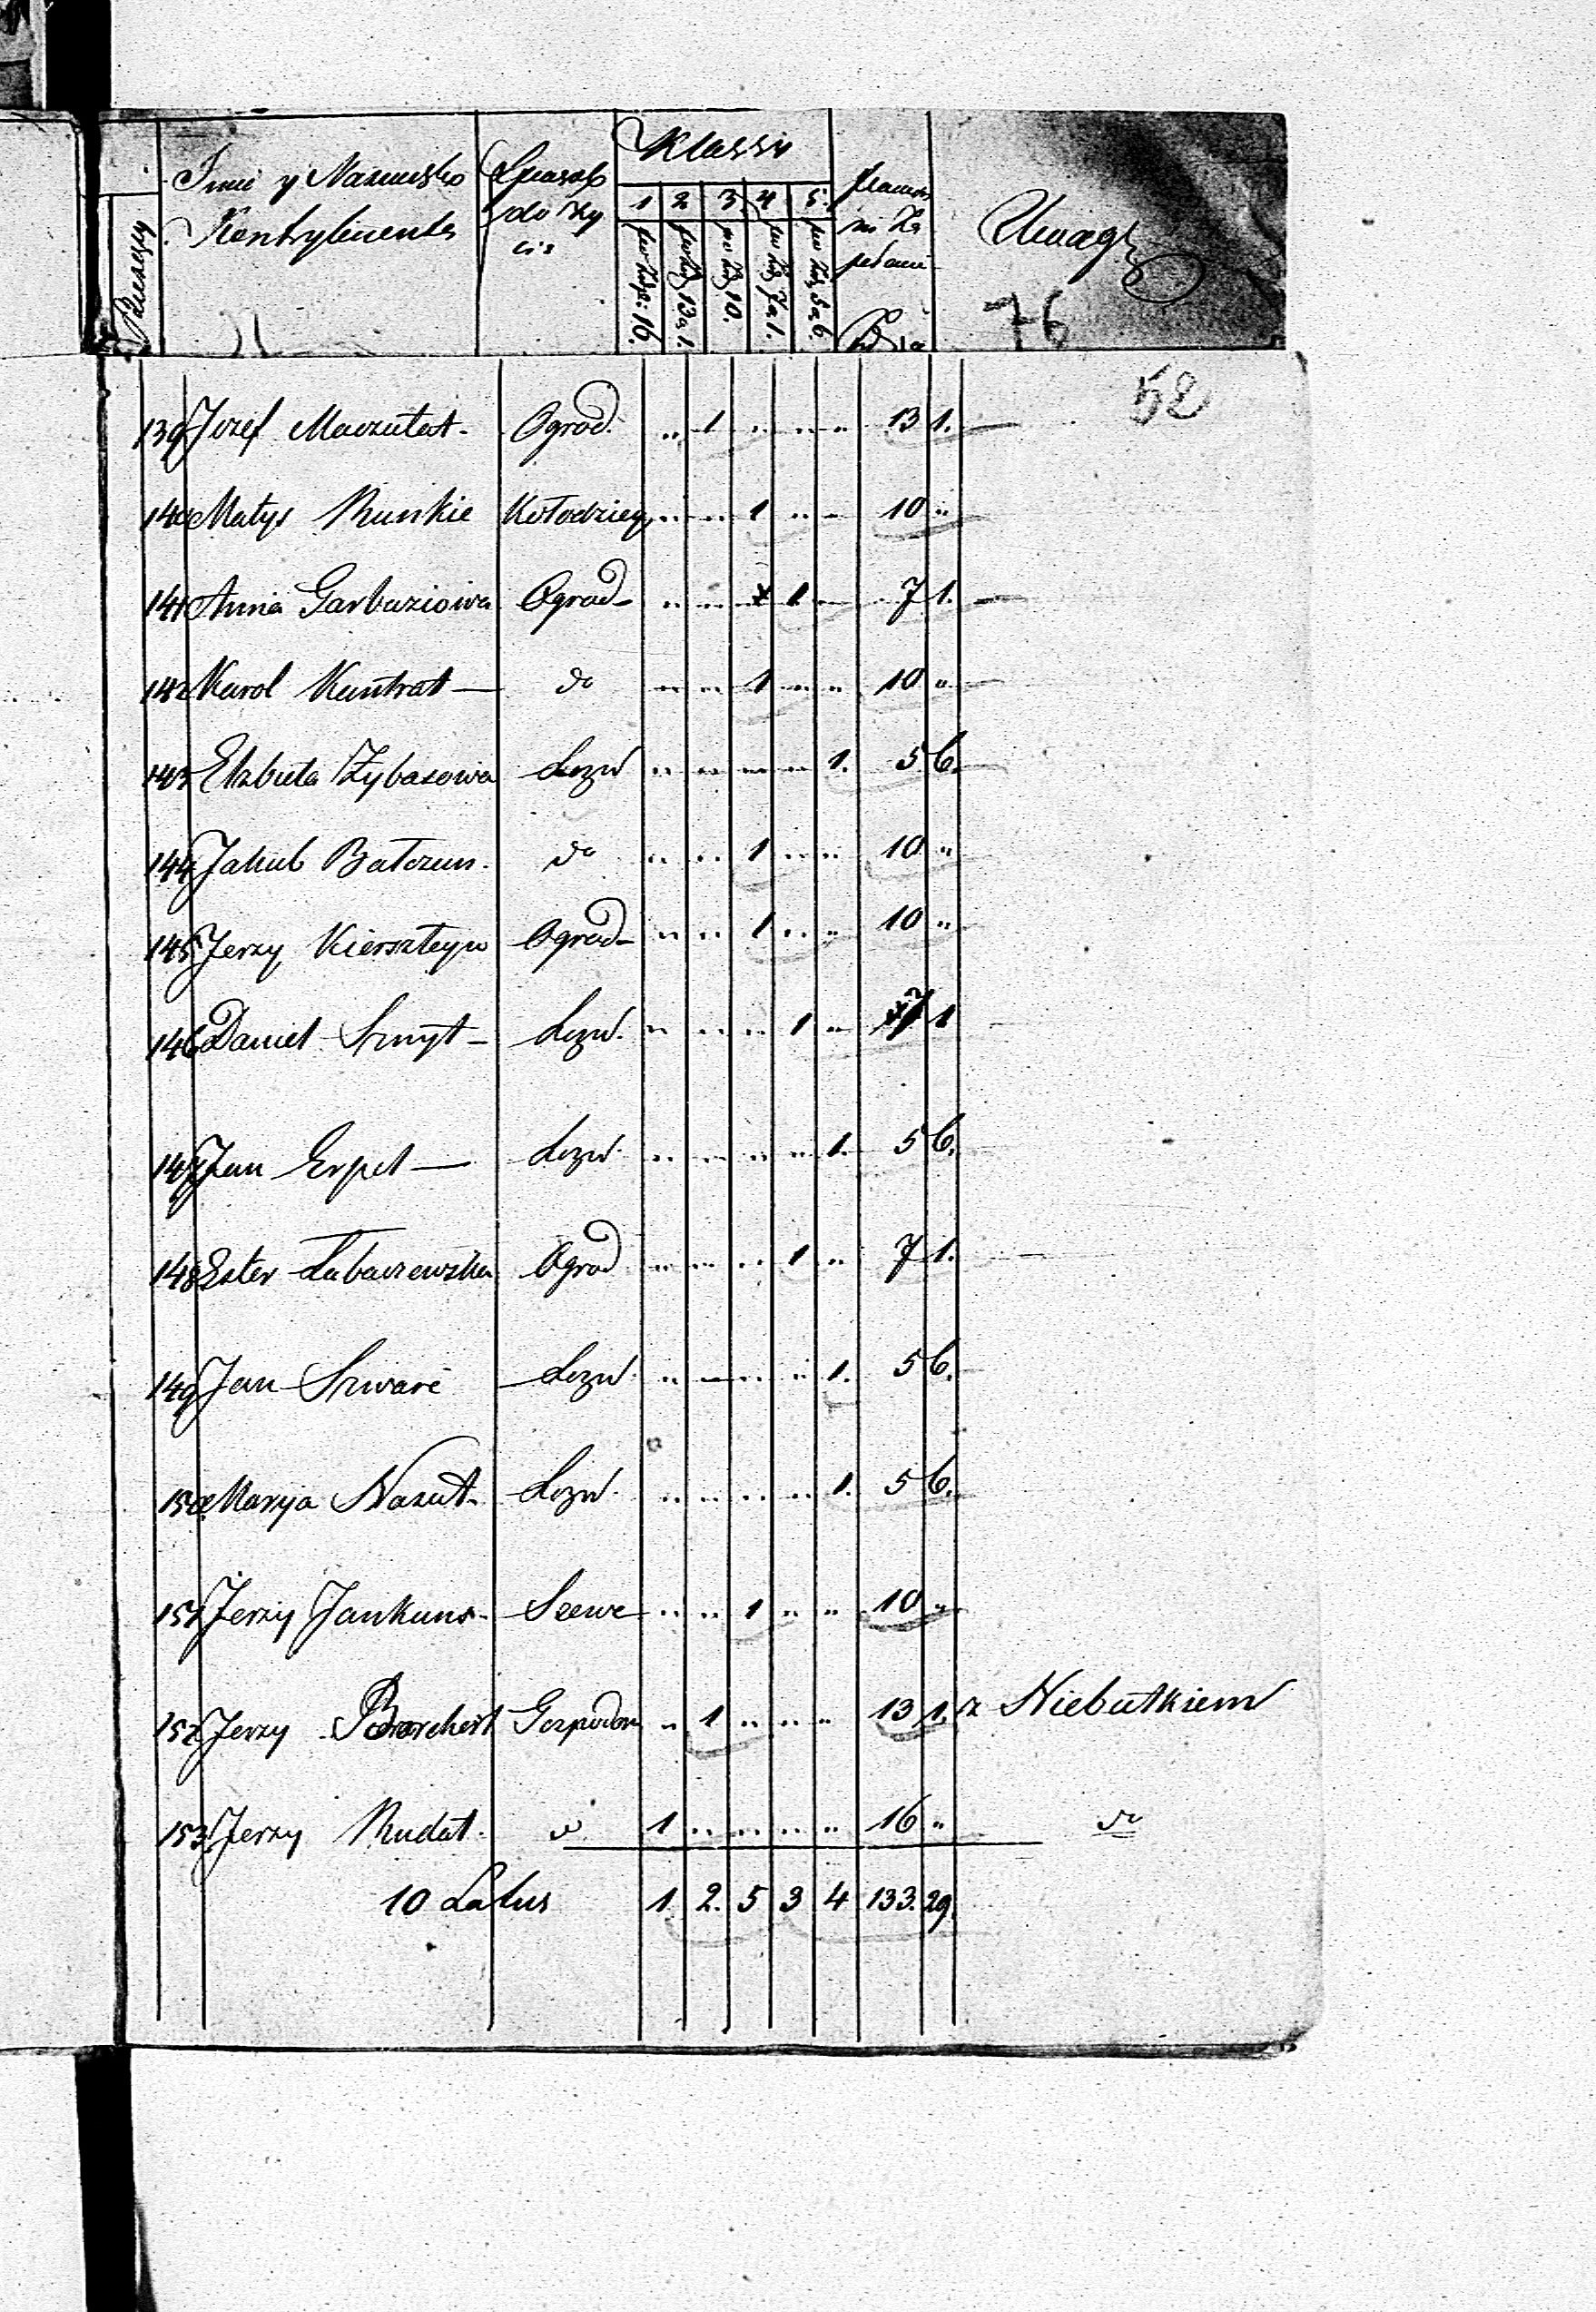 Imie y Nazwisko Kontrybuenta
Sposob do Zycia
Klassy
1 2 3 4 5
16. 13 a 1. 10. 7 a 1. 5 a 6.
Uwagi
76
52
139 Jozef Maczulat - Ograd. .. 1 .. .. .. 13 1. —
140 Matys Runkie Kołodziey .. .. 1 .. .. 10 ..
141 Anna Garbuziowa Ograd - .. .. .. 1. .. 7 1. —
142 Karol Kuntrat — do .. .. 1 .. .. 10 ..
143 Elzbieta Zybasowa Lozn .. .. .. .. 1. 5 6.
144 Jakub Bałczun. do .. .. 1 .. .. 10 ..
145 Jerzy Kierszteyn Ograd - .. .. 1 .. .. 10 ..
146 Daniel Szmyt - Lozn. .. .. .. 1 .. 7 1
147 Jan Erpel — Lozn. .. .. .. .. 1. 5 6.
148 Ester Labaszewska Ograd .. .. .. 1 .. 7 1.
149 Jan Szwarc Lozn. .. .. .. .. 1. 5 6.
150 Maryia Nasut - Lozn. .. .. .. .. 1. 5 6.
151 Jerzy Jankuns - Szewc .. .. 1 .. .. 10 ..
152 Jerzy Borchert Gospodar .. 1 .. .. .. 13 1. z Niebutkiem
153 Jerzy Rudat. do 1 .. .. .. .. 16 .. do
10 Latus 1. 2. 5 3 4 133. 29.